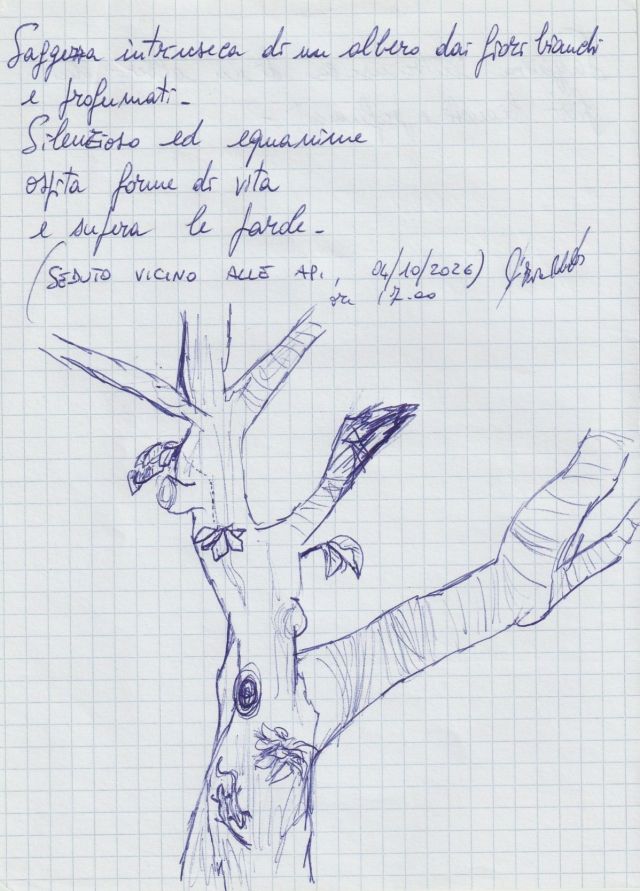 Saggezza intrinseca di un albero dai fiori bianchi
e profumati -
Silenzioso ed equanime
ospita forme di vita
e supera le farde -
(SEDUTO VICINO ALLE API, 04/10/2026)
ore 17.00